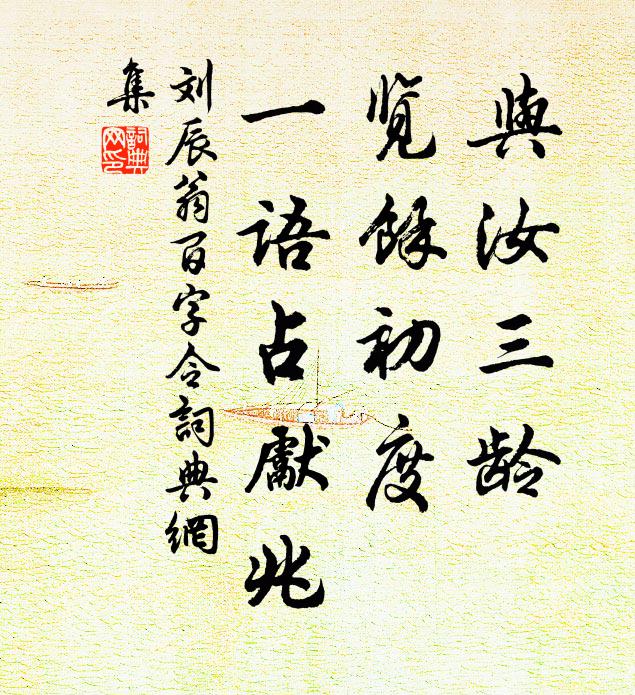 與汝三龄
览餘初度
一語占獻兆
刘辰翁百字令詞典網
集
詞典網印